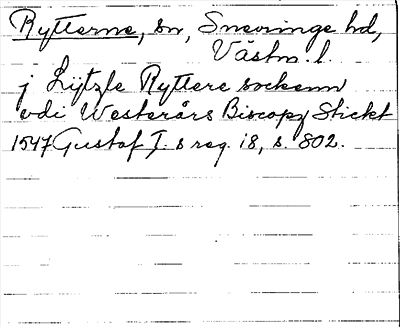 Rytterne, sn, Snevringe hd,
Västm. l.
j Lijtzle Ryttere sockenn
vdi Westerårs Biscopz Stickt
1547 Gustaf I:s reg. 18, s. 802.